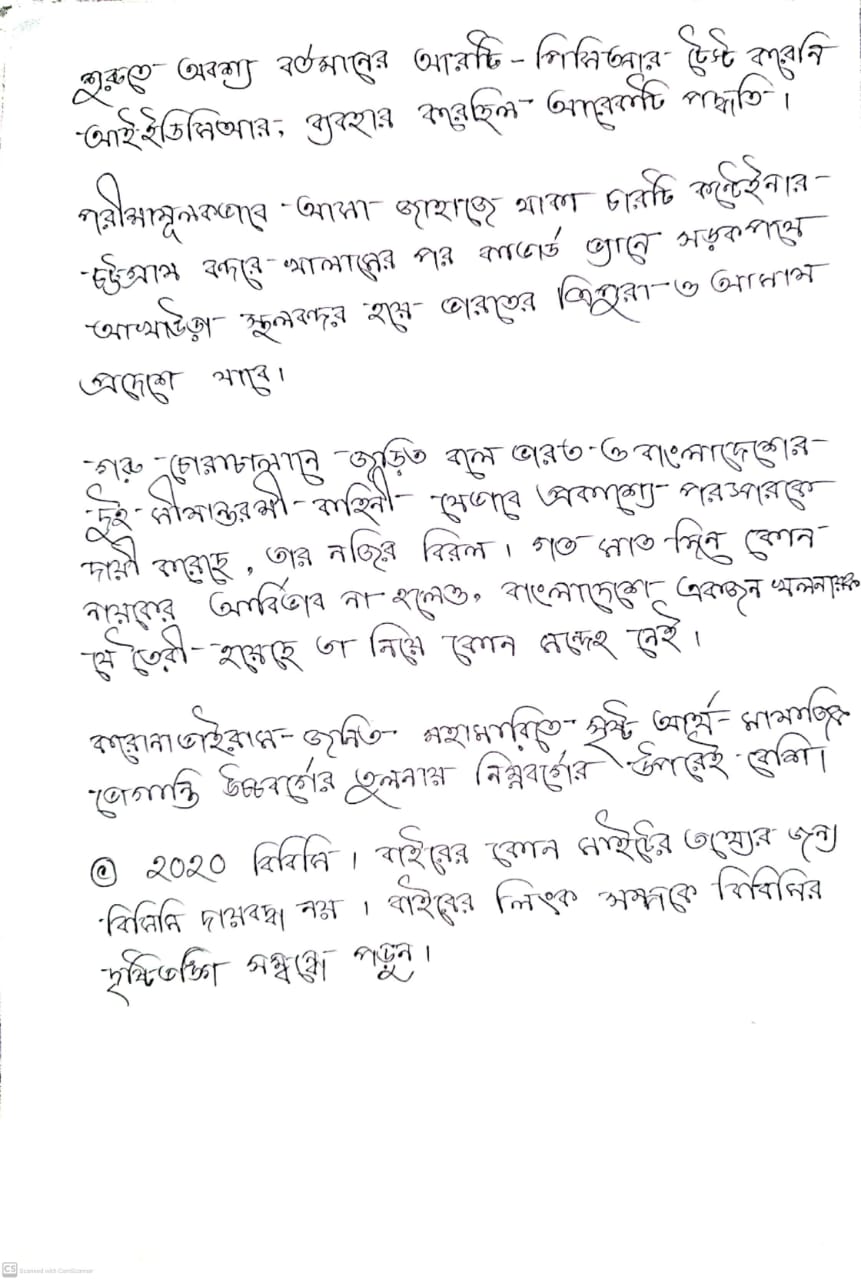 শুরুতে অবশ্য বর্তমানের আরটি - পিসিআর টেস্ট করেনি
আইইডিসিআর, ব্যবহার করেছিল আরেকটি পদ্ধতি।
পরীক্ষামূলকভাবে আসা জাহাজে থাকা চারটি কন্টেইনার
চট্টগ্রাম বন্দরে খালাসের পর কাভার্ড ভ্যানে সড়কপথে
আখাউড়া স্থলবন্দর হয়ে ভারতের ত্রিপুরা ও আসাম
প্রদেশে যাবে।
গরু চোরাচালানে জড়িত বলে ভারত ও বাংলাদেশের
দুই সীমান্তরক্ষী বাহিনী যেভাবে প্রকাশ্যে পরস্পরকে
দায়ী করেছে, তার নজির বিরল। গত সাত দিনে কোন
নায়কের আবির্ভাব না হলেও, বাংলাদেশে একজন খলনায়ক
যে তৈরী হয়েছে তা নিয়ে কোন সন্দেহ নেই।
করোনাভাইরাস-জনিত মহামারিতে সৃষ্ট আর্থ-সামাজিক
ভোগান্তি উচ্চবর্গের তুলনায় নিম্নবর্গের উপরেই বেশি।
© ২০২০ বিবিসি। বাইরের কোন সাইটের তথ্যের জন্য
বিসিসি দায়বদ্ধ নয়। বাইরের লিংক সম্পর্কে বিবিসির
দৃষ্টিভঙ্গি সম্বন্ধে পড়ুন।
CS Scanned with CamScanner